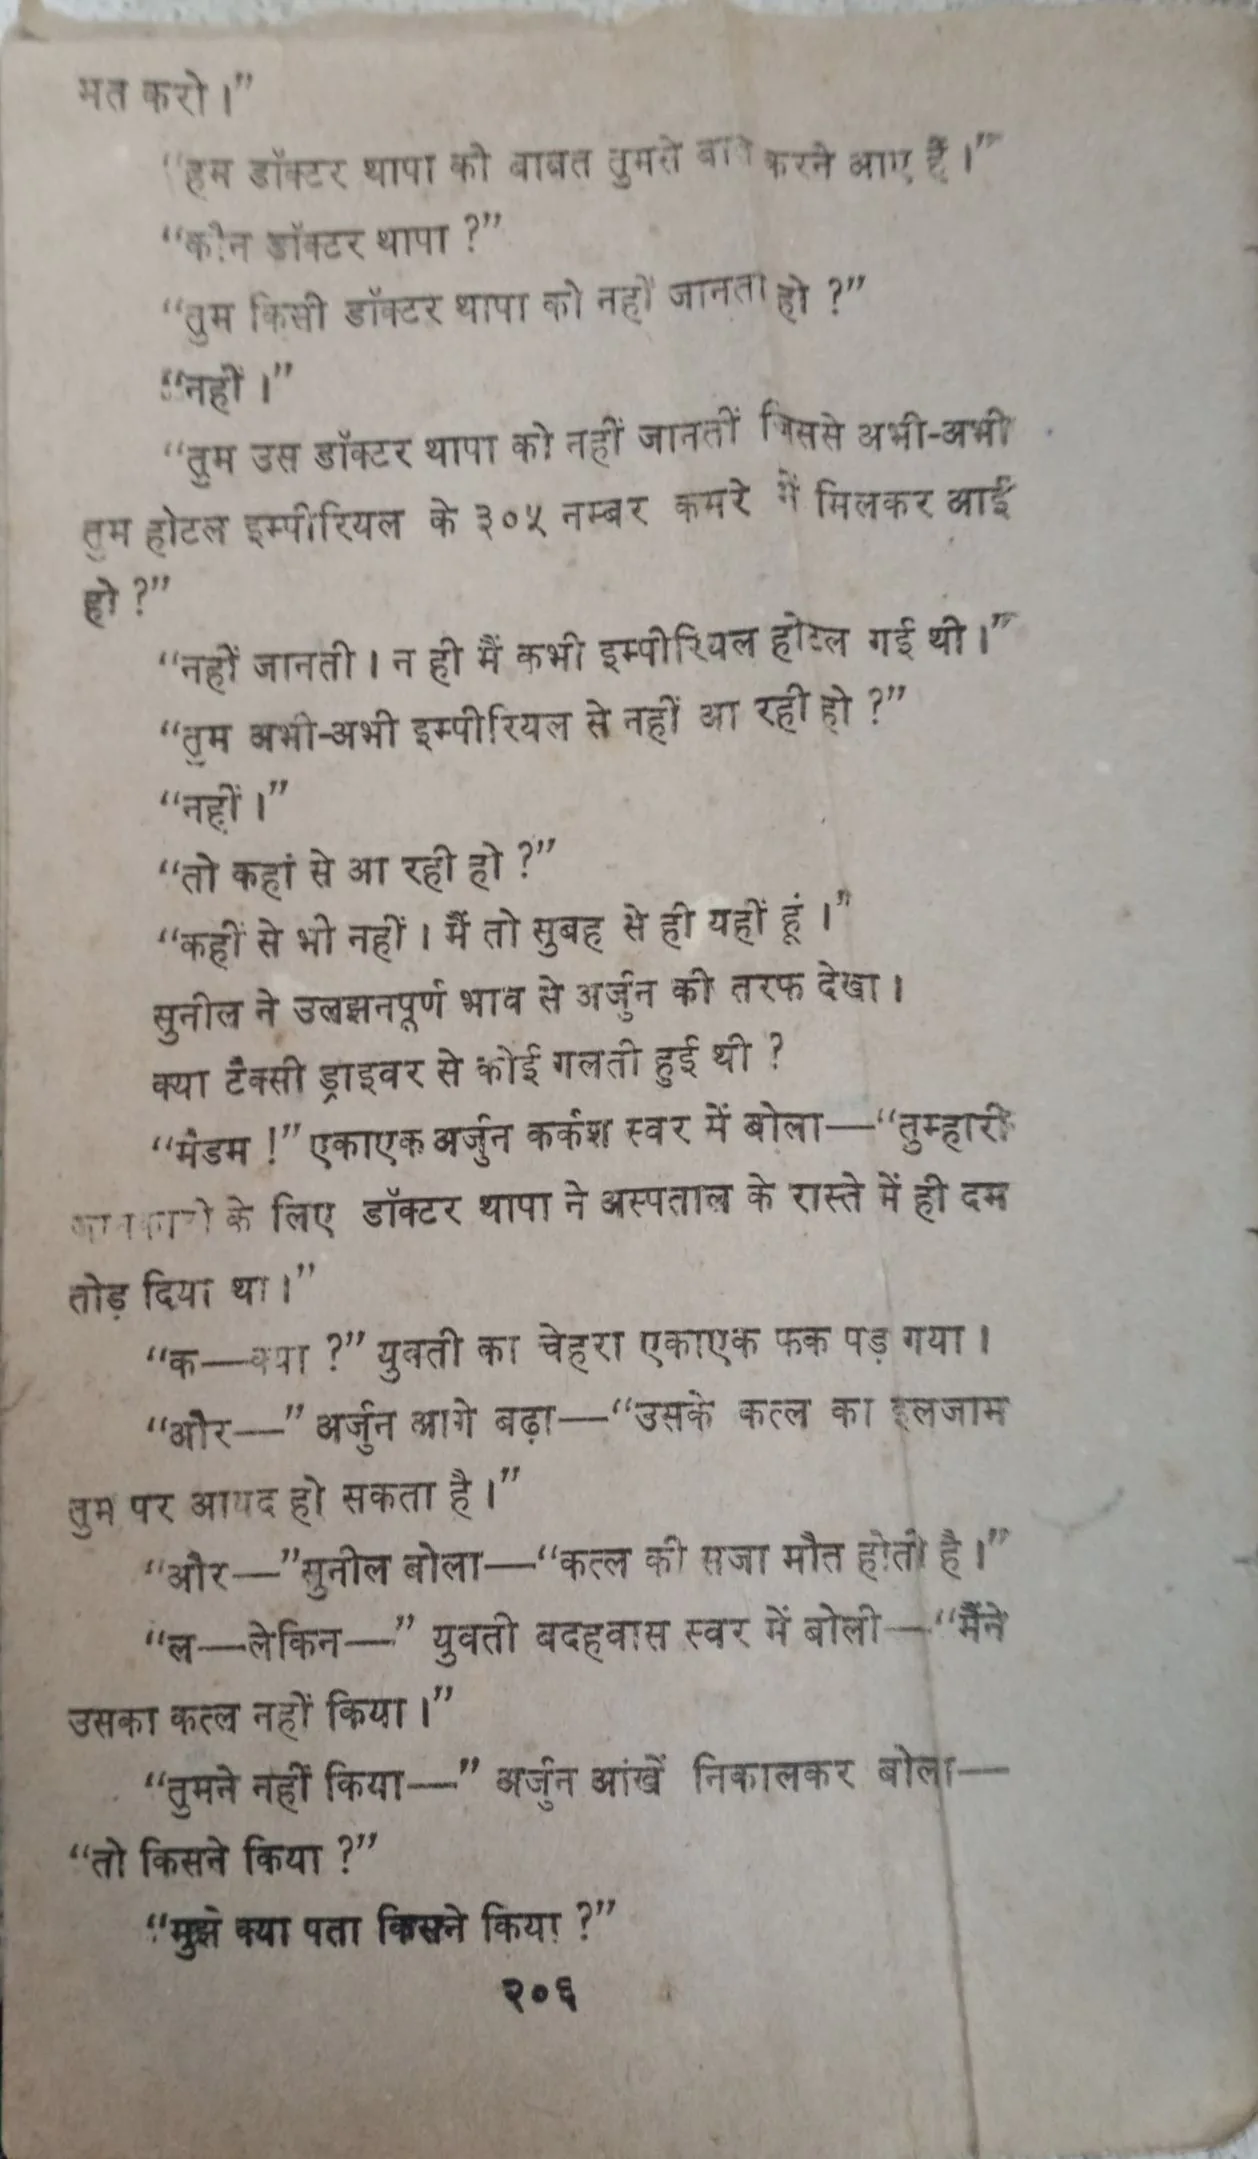 मत करो ।”
“हम डॉक्टर थापा की बाबत तुमसे बात करने आए हैं ।”
“कौन डॉक्टर थापा ?”
“तुम किसी डॉक्टर थापा को नहीं जानती हो ?”
“नहीं ।”
“तुम उस डॉक्टर थापा को नहीं जानतीं जिससे अभी-अभी
तुम होटल इम्पीरियल के ३०५ नम्बर कमरे में मिलकर आई
हो ?”
“नहीं जानती । न ही मैं कभी इम्पीरियल होटल गई थी ।”
“तुम अभी-अभी इम्पीरियल से नहीं आ रही हो ?”
“नहीं ।”
“तो कहां से आ रही हो ?”
“कहीं से भी नहीं । मैं तो सुबह से ही यहीं हूं ।”
सुनील ने उलझनपूर्ण भाव से अर्जुन की तरफ देखा ।
क्या टैक्सी ड्राइवर से कोई गलती हुई थी ?
“मैडम !” एकाएक अर्जुन कर्कश स्वर में बोला—“तुम्हारी
जानकारी के लिए डॉक्टर थापा ने अस्पताल के रास्ते में ही दम
तोड़ दिया था ।”
“क—क्या ?” युवती का चेहरा एकाएक फक पड़ गया ।
“और—” अर्जुन आगे बढ़ा—“उसके कत्ल का इलजाम
तुम पर आयद हो सकता है ।”
“और—” सुनील बोला—“कत्ल की सजा मौत होती है ।”
“ल—लेकिन—” युवती बदहवास स्वर में बोली—“मैंने
उसका कत्ल नहीं किया ।”
“तुमने नहीं किया—” अर्जुन आंखें निकालकर बोला—
“तो किसने किया ?”
“मुझे क्या पता किसने किया ?”
२०६